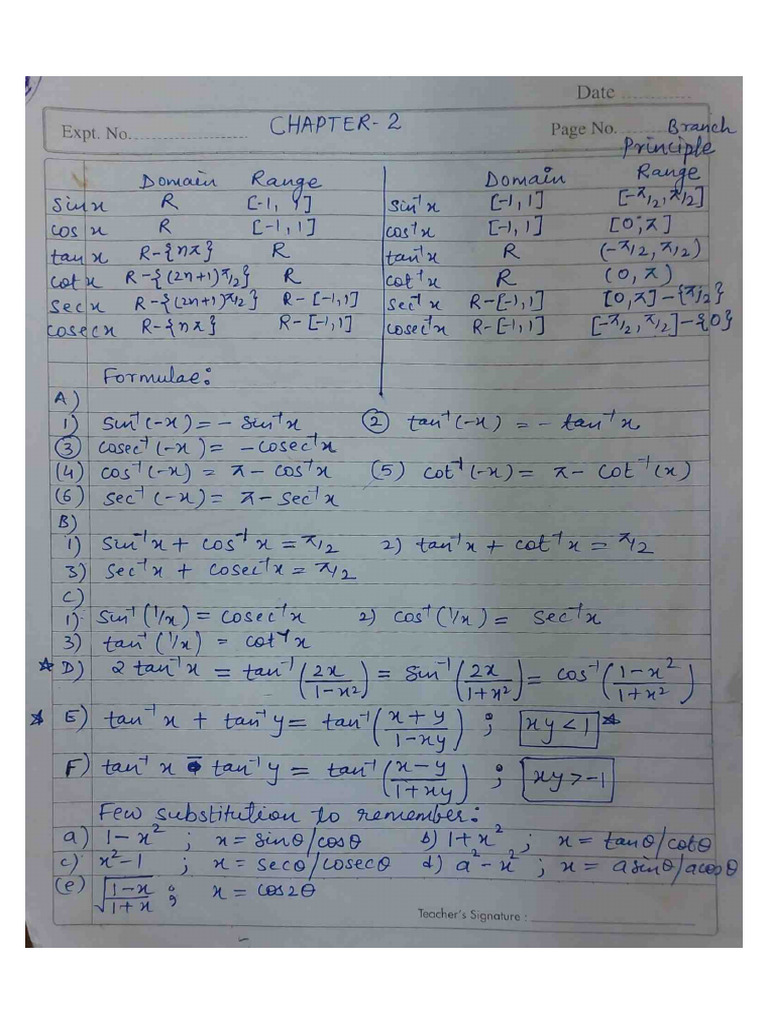 Date ............
Expt. No. ............ CHAPTER-2 Page No. ........ Branch
Principle
Domain Range Domain Range
sin x R [-1, 1] sin⁻¹x [-1, 1] [-π/2, π/2]
cos x R [-1, 1] cos⁻¹x [-1, 1] [0, π]
tan x R-{nπ} R tan⁻¹x R (-π/2, π/2)
cot x R-{(2n+1)π/2} R cot⁻¹x R (0, π)
sec x R-{(2n+1)π/2} R-[-1,1] sec⁻¹x R-[-1,1] [0,π]-{π/2}
cosec x R-{nπ} R-[-1,1] cosec⁻¹x R-[-1,1] [-π/2, π/2]-{0}
Formulae:
A)
1) sin⁻¹(-x) = - sin⁻¹x ② tan⁻¹(-x) = - tan⁻¹x
③ cosec⁻¹(-x) = -cosec⁻¹x
(4) cos⁻¹(-x) = π - cos⁻¹x (5) cot⁻¹(-x) = π - cot⁻¹(x)
(6) sec⁻¹(-x) = π - sec⁻¹x
B)
1) sin⁻¹x + cos⁻¹x = π/2 2) tan⁻¹x + cot⁻¹x = π/2
3) sec⁻¹x + cosec⁻¹x = π/2
C)
1) sin⁻¹(1/x) = cosec⁻¹x 2) cos⁻¹(1/x) = sec⁻¹x
3) tan⁻¹(1/x) = cot⁻¹x
* D) 2 tan⁻¹x = tan⁻¹(2x/1-x²) = sin⁻¹(2x/1+x²) = cos⁻¹(1-x²/1+x²)
* E) tan⁻¹x + tan⁻¹y = tan⁻¹(x+y/1-xy) ; xy<1 *
F) tan⁻¹x - tan⁻¹y = tan⁻¹(x-y/1+xy) ; xy>-1
Few substitution to remember:
a) 1-x² ; x = sinθ/cosθ b) 1+x² ; x = tanθ/cotθ
c) x²-1 ; x = secθ/cosecθ d) a²-x² ; x = a sinθ/a cosθ
(e) √(1-x/1+x) ; x = cos2θ
Teacher's Signature : ............